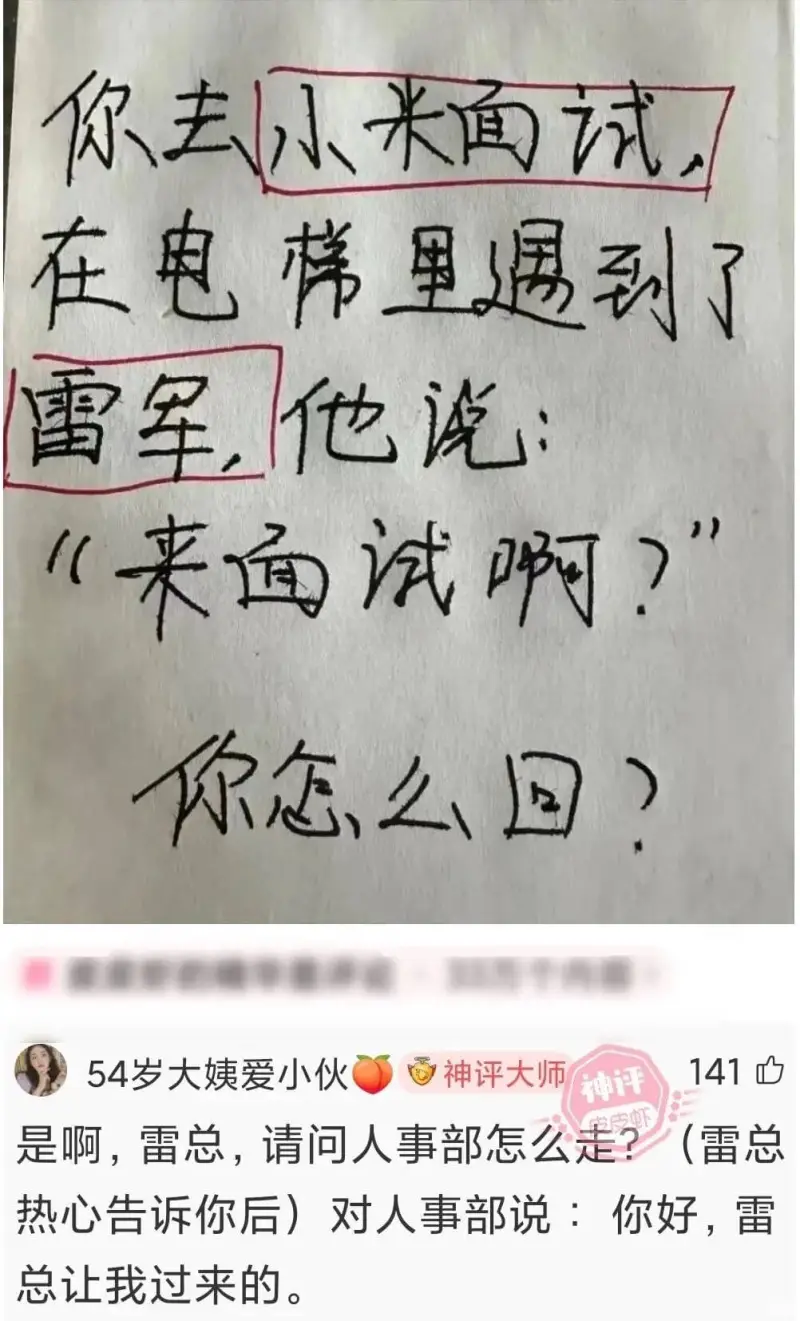 你去小米面试,
在电梯里遇到了
雷军,他说:
“来面试啊?”
你怎么回?
54岁大姨爱小伙🍑 神评大师 神评 皮皮虾 141
是啊，雷总，请问人事部怎么走？（雷总
热心告诉你后）对人事部说：你好，雷
总让我过来的。